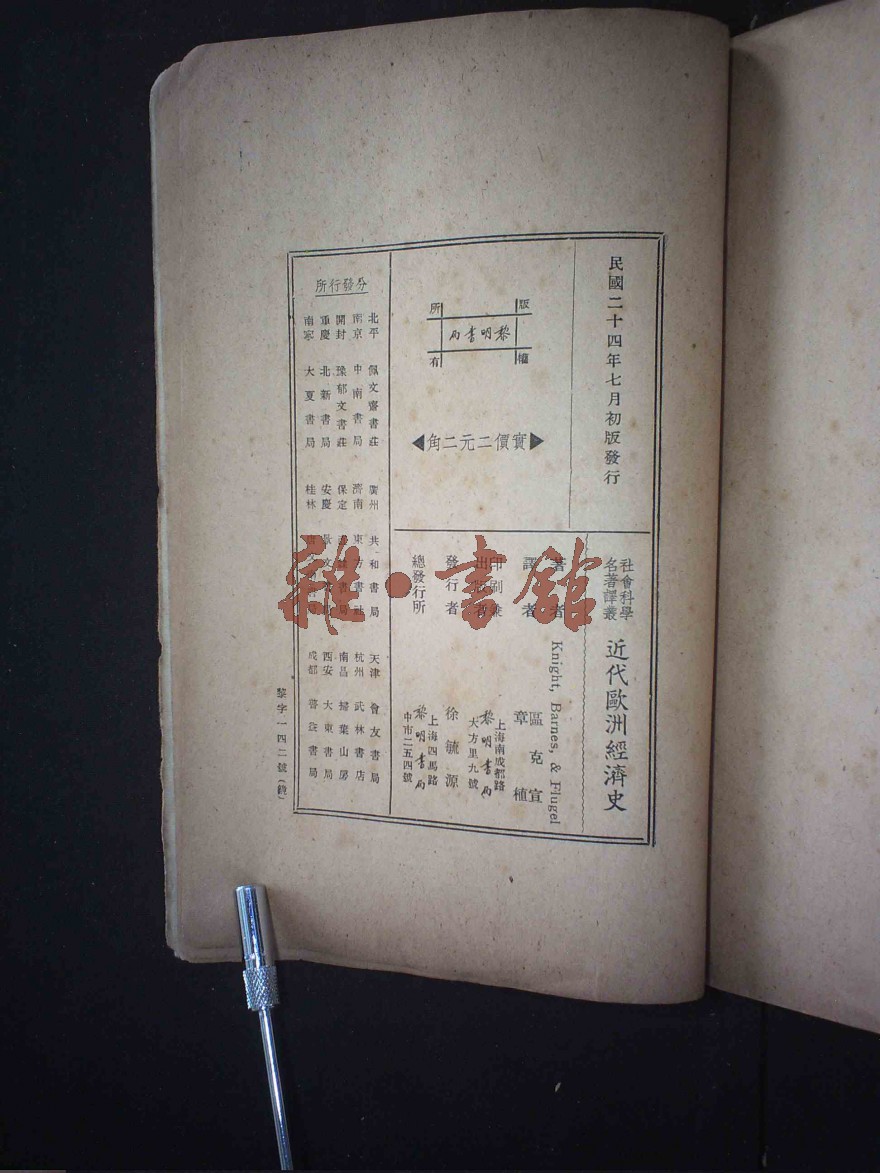 民國二十四年七月初版發行
社會科學
名著譯叢
近代歐洲經濟史
版權所有
黎明書局
實價二元二角
著者 Knight, Barnes, & Flugel
譯者 區克宣
章植
印刷兼
出版者
上海南成都路
黎明書局
大方里九號
發行者 徐毓源
總發行所
上海四馬路
黎明書局
中市二五四號
分發行所
北平 佩文齋書莊
南京 中南書局
開封 豫郁文書莊
重慶 北新書局
南寧 大夏書局
廣州 共和書局
濟南 東方書社
保定 書局
安慶
桂林
天津 會友書局
杭州 武林書店
南昌 掃葉山房
西安 大東書局
成都 書局
黎字一四二號(錢)
雜·書館